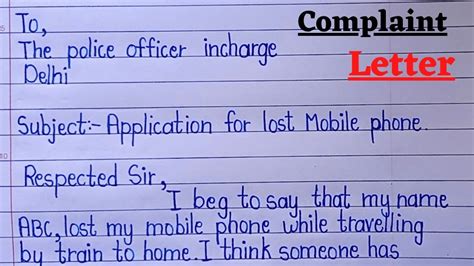 To,
Complaint
The police officer incharge
Letter
Delhi
Subject:- Application for lost Mobile phone.
Respected Sir,
I beg to say that my name
ABC, lost my mobile phone while travelling
by train to home. I think someone has